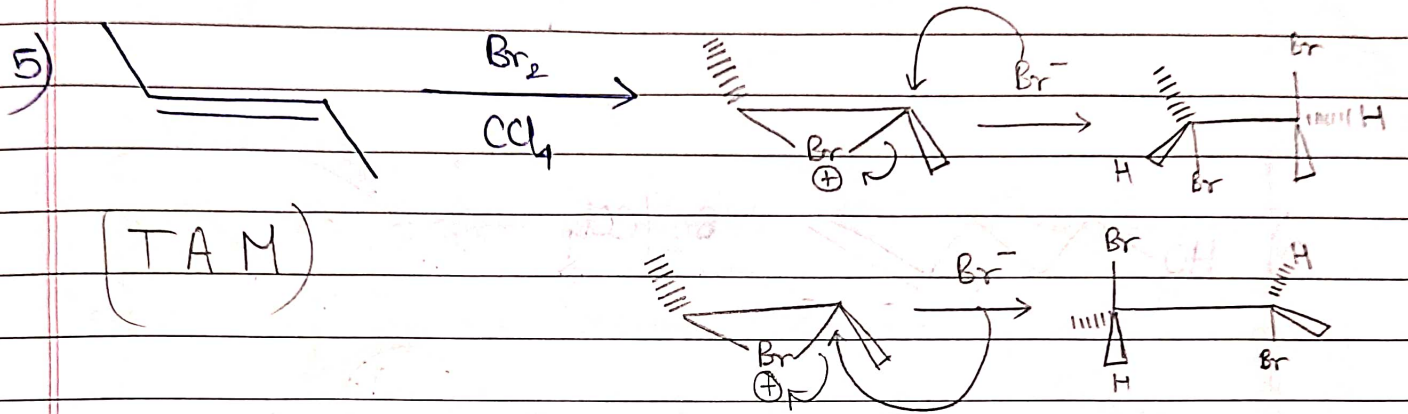 5)
Br₂
CCl₄
Br
⊕
Br⁻
Br
H
H
Br
(TAM)
Br
⊕
Br⁻
Br
H
H
Br